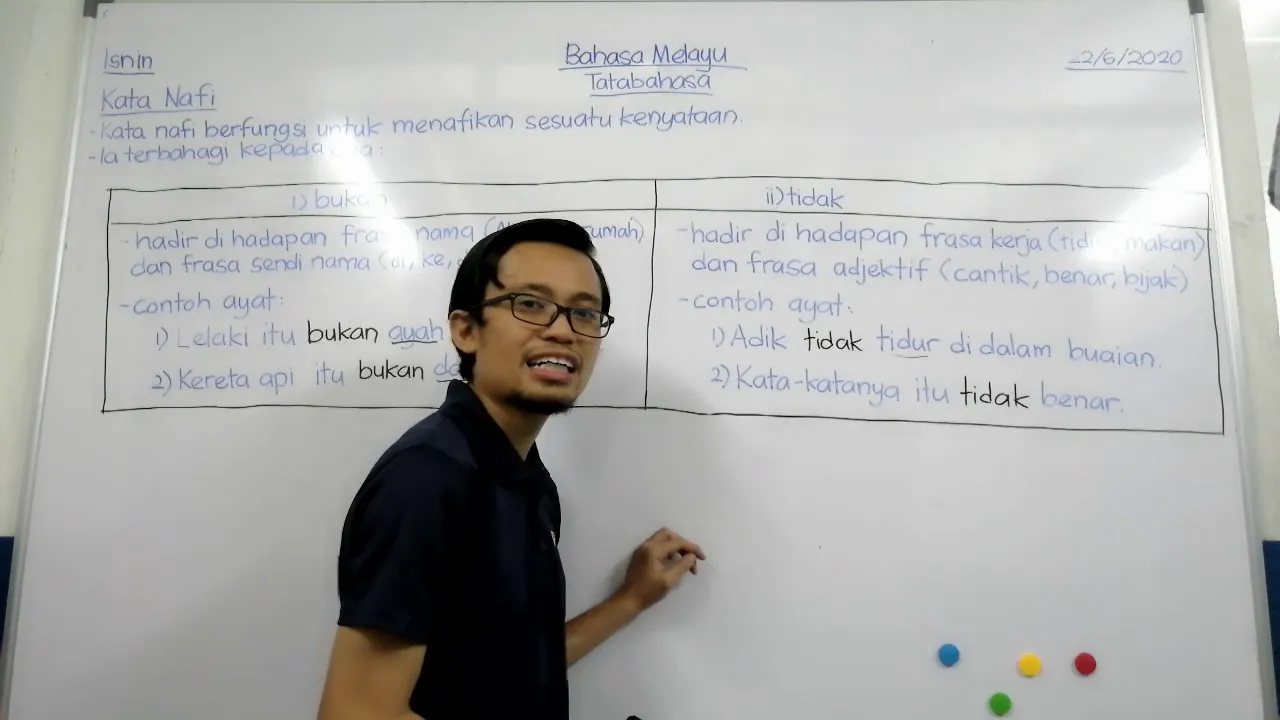 Isnin
Bahasa Melayu
22/6/2020
Tatabahasa
Kata Nafi
- Kata nafi berfungsi untuk menafikan sesuatu kenyataan.
- Ia terbahagi kepada :
i) bukan
ii) tidak
- hadir di hadapan frasa nama ( rumah)
dan frasa sendi nama (di, ke,
- contoh ayat:
1) Lelaki itu bukan ayah
2) Kereta api itu bukan
- hadir di hadapan frasa kerja ( makan)
dan frasa adjektif (cantik, benar, bijak)
- contoh ayat:
1) Adik tidak tidur di dalam buaian.
2) Kata-katanya itu tidak benar.